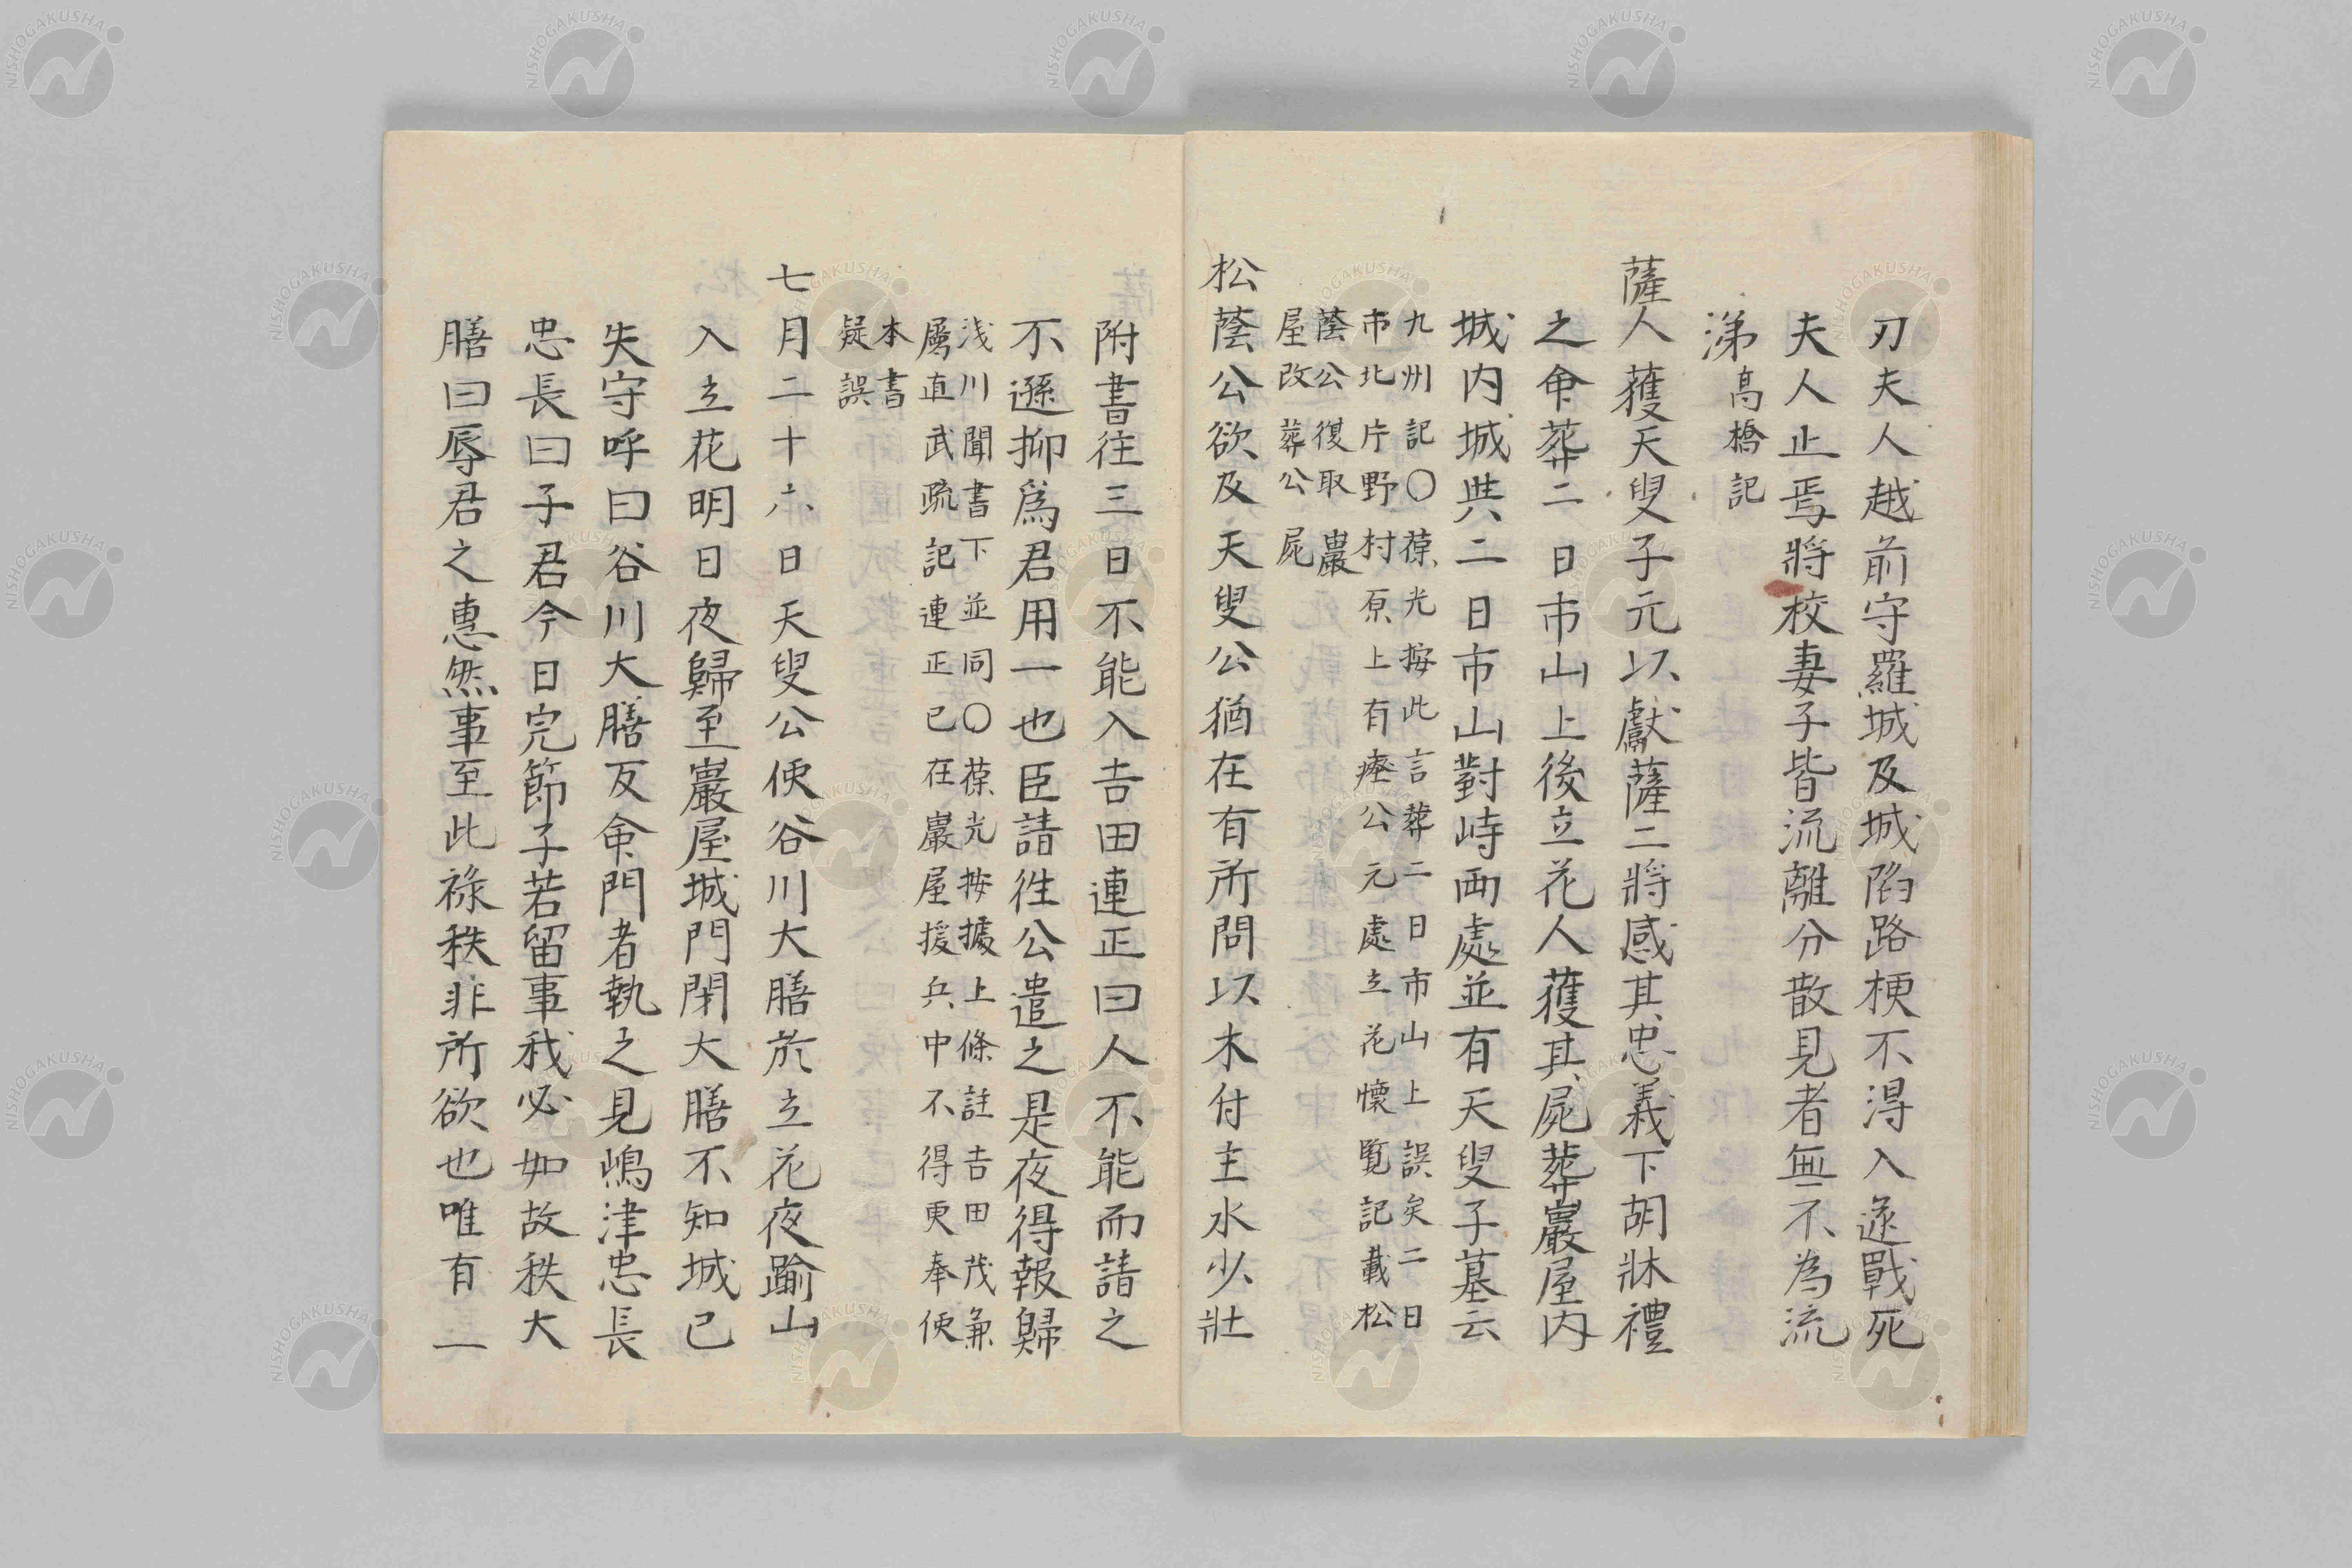 刃夫人越前守羅城及城陷路梗不得入遂戰死
夫人止焉將校妻子皆流離分散見者無不為流
涕高橋記
薩人獲天叟子元以獻薩二將感其忠義下胡牀禮
之命葬二日市山上後立花人獲其屍葬巖屋内
城内城與二日市山對峙兩處並有天叟子墓云
九州記〇葆光按此言葬二日市山上誤矣二日
市北片野村原上有瘞公元處立花懷覧記載松
蔭公復取巖
屋改葬公屍
松蔭公欲及天叟公猶在有所問以木付主水少壯
附書往三日不能入吉田連正曰人不能而請之
不遜抑爲君用一也臣請往公遣之是夜得報歸
浅川聞書下並同〇葆光按據上條註吉田茂兼
屬直武疏記連正已在巖屋援兵中不得更奉使
本書
疑誤
七月二十六日天叟公使谷川大膳於立花夜踰山
入立花明日夜歸至巖屋城門閉大膳不知城已
失守呼曰谷川大膳反命門者執之見嶋津忠長
忠長曰子君今日完節子若留事我必如故秩大
膳曰辱君之惠然事至此祿秩非所欲也唯有一
NISHOGAKUSHA